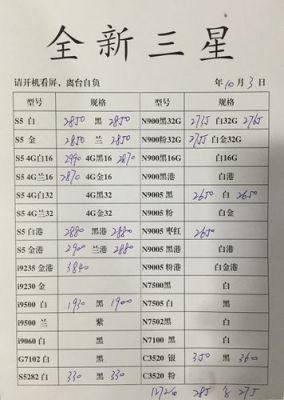 全新三星
请开机看屏，离台自负 年10月3日
型号 规格 型号 规格
S5 白 2850 黑 2850 N900黑32G 2735 白32G 2765
S5 金 2850 兰 2850 N900粉32G 2755 白金32G
S5 4G白16 2990 4G黑16 2870 N900黑16G 白16G
S5 4G兰16 2870 4G金16 N900黑港 白港
S5 4G白32 4G黑32 N9005 黑 2650 白 2650
S5 4G兰32 4G金32 N9005 粉 白金
S5 白港 2880 黑港 2880 N9005 枣红 2650
S5 金港 2900 兰港 2880 N9005 黑港 白港
i9235 金港 3840 N9005 粉港 白金港
i9230 金 N7500黑 白
i9500 白 1930 黑 1900 N7505 白 黑
i9500 兰 紫 N7502黑 白
i9060 白 黑 N7100 黑 白
G7102 白 黑 C3520 银 350 黑 360
S5282 白 330 黑 330 C3520 粉
285 275